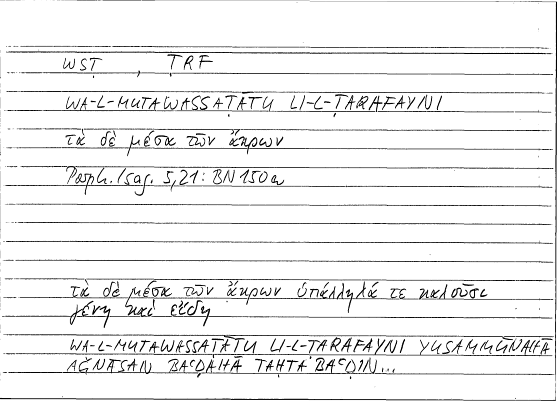 WSṬ , ṬRF
WA-L-MUTAWASSAṬĀTU LI-L-ṬARAFAYNI
τὰ δὲ μέσα τῶν ἄκρων
Porph. Isag. 5,21: BN 150a
τὰ δὲ μέσα τῶν ἄκρων ὑπάλληλά τε καλοῦσι
γένη καὶ εἴδη
WA-L-MUTAWASSAṬĀTU LI-L-ṬARAFAYNI YUSAMMŪNAHĀ
AǦNĀSAN BAʿḌAHĀ TAḤTA BAʿḌIN...